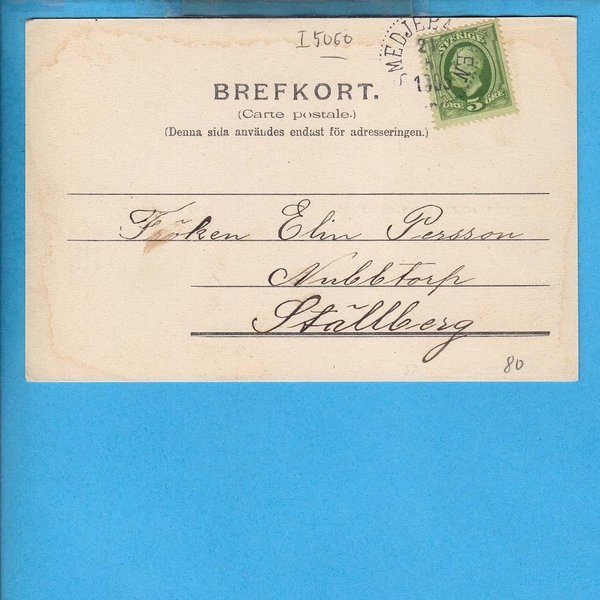 I 5060
SMEDJEBA
SVERIGE
21
EN
ÖRE 5 ÖRE
BREFKORT.
(Carte postale.)
(Denna sida användes endast för adresseringen.)
Fröken Elin Persson
Nubbtorp
Ställberg
80